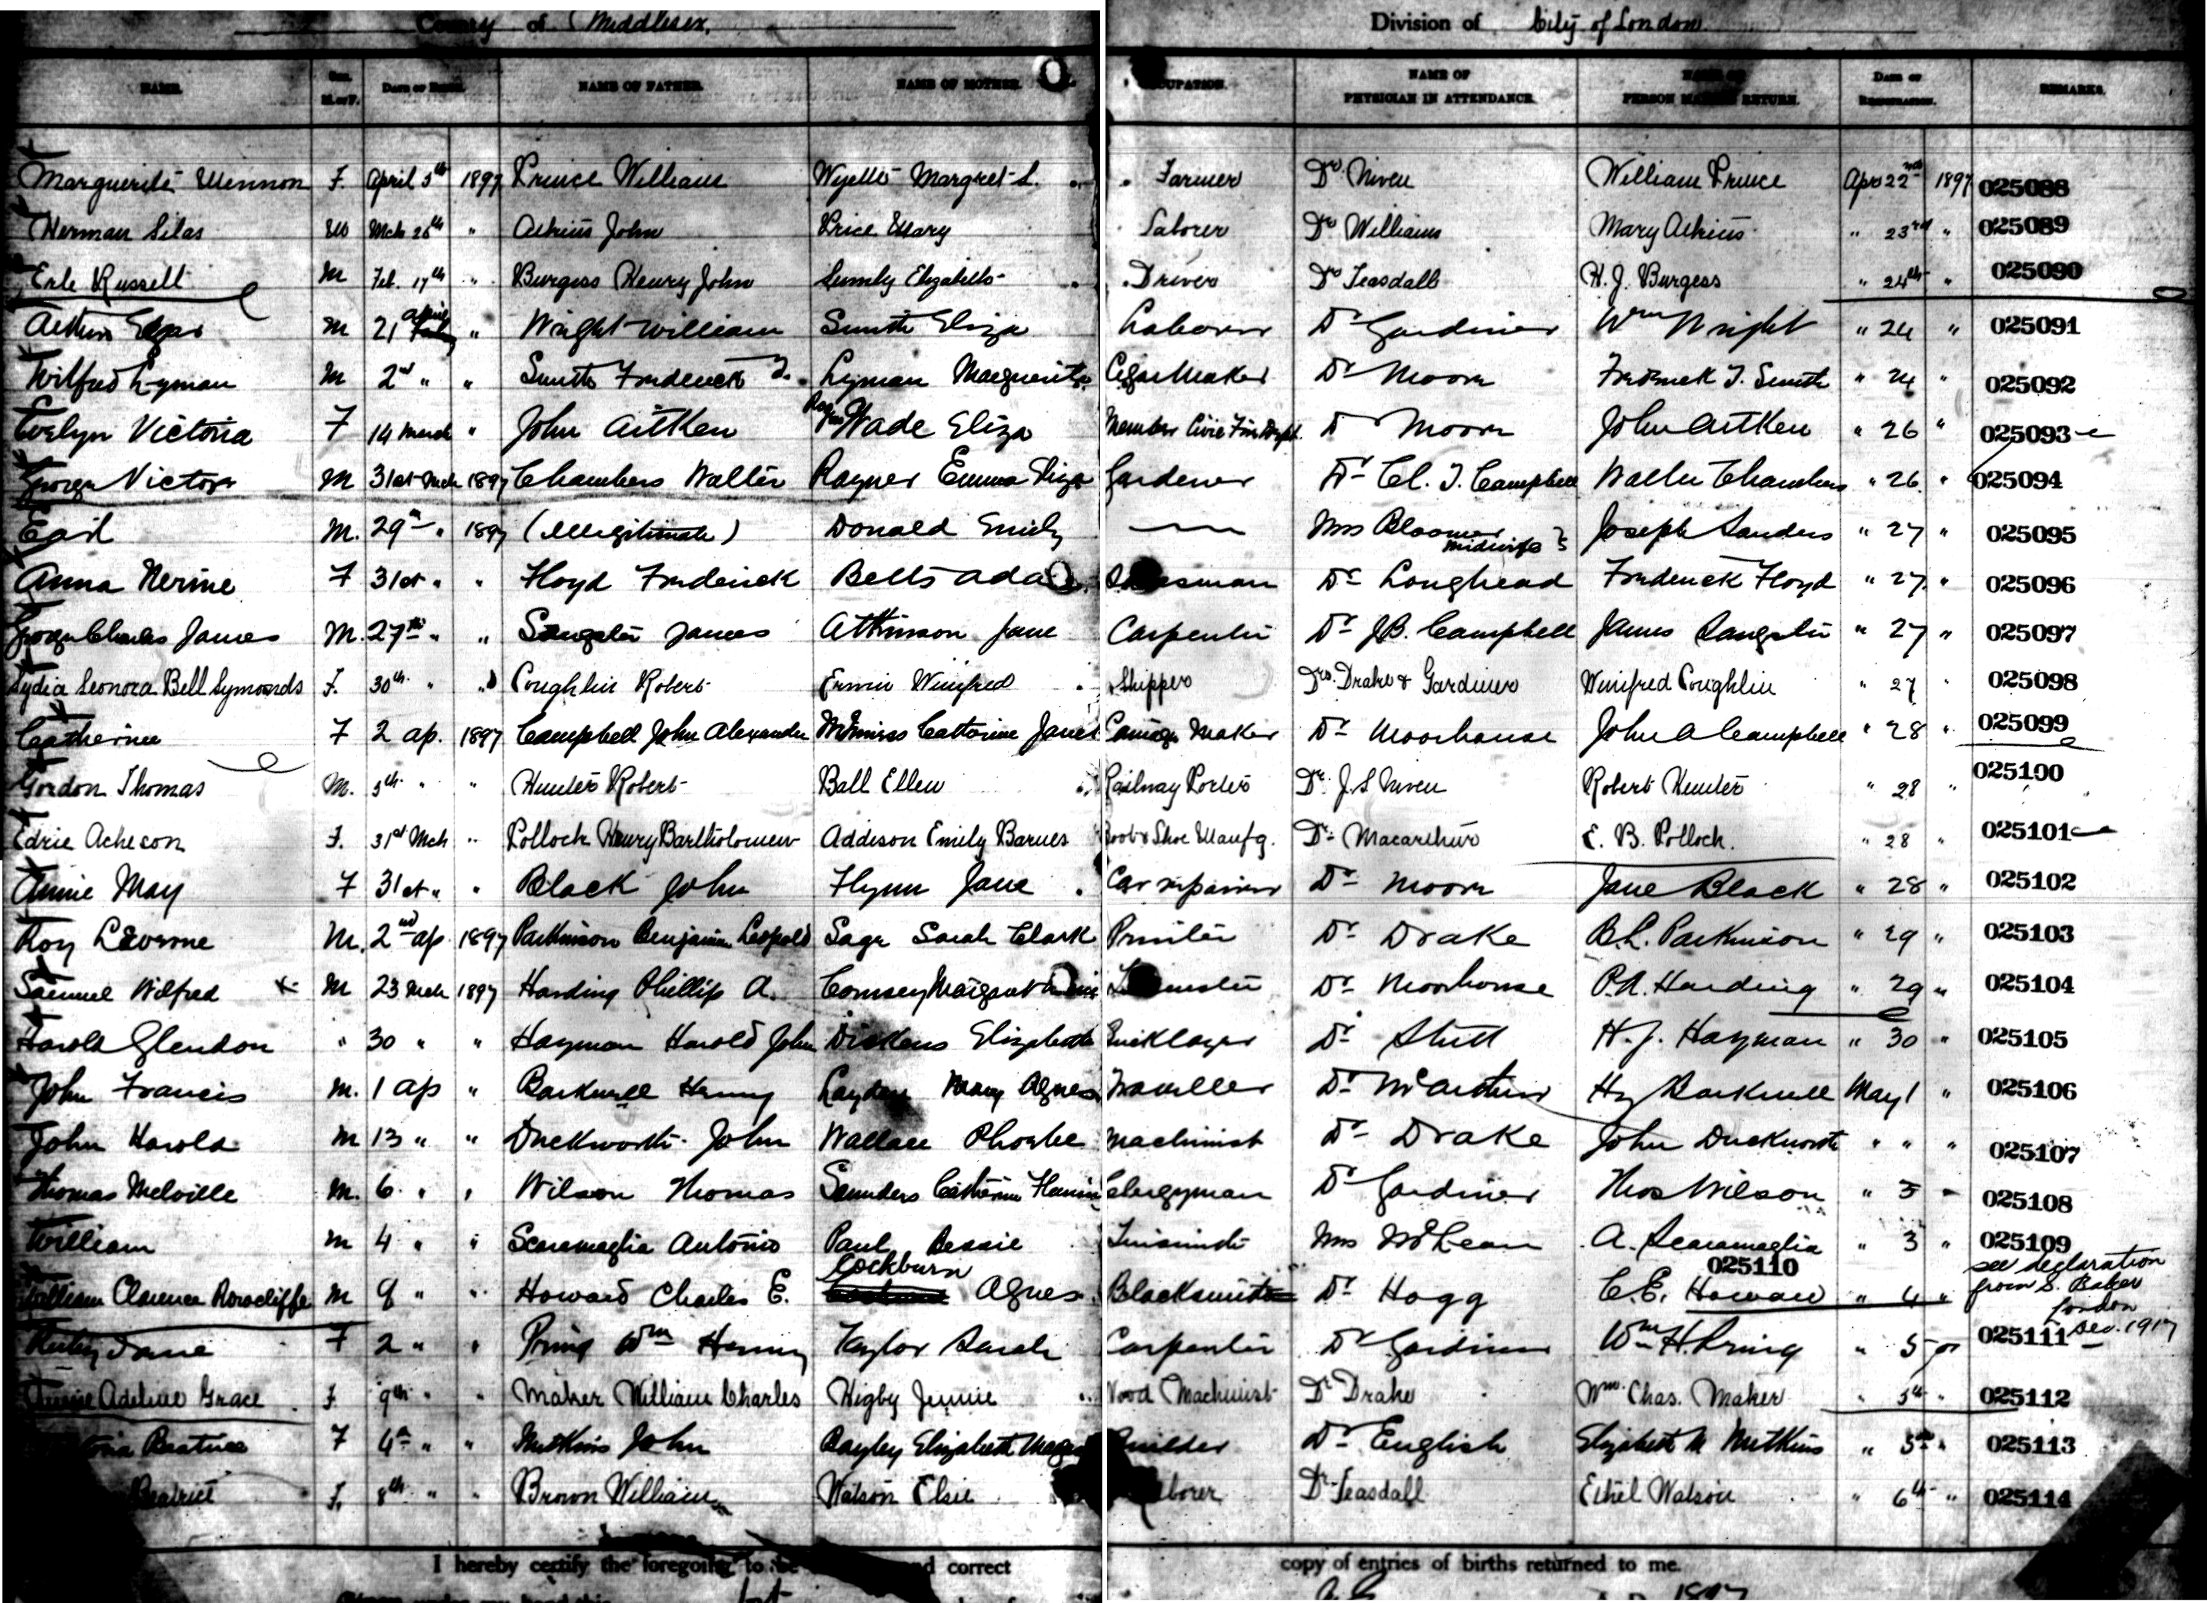 County of Middlesex, Division of City of London
NAME. SEX. M. or F. DATE OF BIRTH. NAME OF FATHER. NAME OF MOTHER. OCCUPATION. NAME OF PHYSICIAN IN ATTENDANCE. NAME OF PERSON MAKING RETURN. DATE OF REGISTRATION. REMARKS.
Marguerite F. April 5th 1897 Prince William Margret L. Farmer Dr Niven William Prince Apr 22nd 1897 025088
Herman Silas M Mch 26th " Atkins John Price Mary Laborer Dr Williams Mary Atkins " 23rd " 025089
Erle Russell M Feb. 17th " Burgess Henry John Elizabeth Driver Dr Teasdall H. J. Burgess " 24th " 025090
Arthur M 21 " Wright William Smith Eliza Laborer Dr Gardiner Wm Wright " 24 " 025091
Wilfred Lyman M 2nd " " Smith Frederick T. Lyman Marguerite Cigar Maker Dr Moore Fredrick T. Smith " 24 " 025092
Evelyn Victoria F 14 March " John Aitken Wade Eliza Member Civic Fire Dept. Dr Moore John Aitken " 26 " 025093
George Victor M 31st Mch 1897 Chambers Walter Rayner Emma Eliza Gardener Dr Cl. T. Campbell Walter Chambers " 26 " 025094
Earl M. 29th " 1897 (Illegitimate) Donald Emily — Mrs Bloomer midwife Joseph Sanders " 27 " 025095
Anna Nerine F 31st " " Floyd Frederick Betts Ada Salesman Dr Longhead Frederick Floyd " 27 " 025096
George Charles James M. 27th " " Sangster James Atkinson Jane Carpenter Dr J.B. Campbell James Sangster " 27 " 025097
Lydia Leonora Bell Symonds F. 30th " " Coughlin Robert Erwin Winifred Shipper Drs. Drake & Gardiner Winifred Coughlin " 27 " 025098
Catherine F 2 ap. 1897 Campbell John Alexander Catherine Janet Carriage Maker Dr Moorhouse John A Campbell " 28 " 025099
Gordon Thomas M. 5th " " Hunter Robert Ball Ellen Railway Porter Dr. J. S. Niven Robert Hunter " 28 " 025100
Edrie Acheson F. 31st Mch " Pollock Henry Bartholomew Addison Emily Barnes Boot & Shoe Manfg. Dr. Macarthur E. B. Pollock. " 28 " 025101
Annie May F 31st " " Black John Flynn Jane Car repairer Dr Moore Jane Black " 28 " 025102
Roy LaVerne M. 2nd ap 1897 Parkinson Benjamin Leopold Sage Sarah Clark Printer Dr Drake B.L. Parkinson " 29 " 025103
Samuel Wilfred M 23 Mch 1897 Harding Phillip A. Margaret Teamster Dr Moorhouse P.A. Harding " 29 " 025104
Harold Glendon " 30 " " Hayman Harold John Dickens Elizabeth Bricklayer Dr Stutt H. J. Hayman " 30 " 025105
John Francis M. 1 ap " Barkwell Henry Layden Mary Agnes Traveller Dr McArthur Hy Barkwell May 1 " 025106
John Harold M 13 " " Duckworth John Wallace Phoebe Machinist Dr Drake John Duckworth " " " 025107
Thomas Melville M. 6 " " Wilson Thomas Saunders Catherine Clergyman Dr Gardiner Thos Wilson " 3 " 025108
William M 4 " " Scaramaglia Antonio Paul Bessie Mrs McLean A. Scaramaglia " 3 " 025109
William Clarence Rowcliffe M 9 " " Howard Charles E. Cockburn Agnes Blacksmith Dr Hogg C.E. Howard 025110 " 4 " see declaration from S. Baker London Dec. 1917
Jane F 2 " " Pring Wm Henry Taylor Sarah Carpenter Dr Gardiner Wm H Pring " 5 " 025111
Adeline Grace F. 9th " " Maker William Charles Higby Jennie Wood Machinist Dr Drake Wm. Chas. Maker " 5th " 025112
Beatrice F 4th " " John Bayley Elizabeth Builder Dr English Elizabeth M " 5th " 025113
Beatrice F. 8th " " Brown William Watson Elsie Laborer Dr Teasdall Ethel Watson " 6th " 025114
I hereby certify the foregoing to be and correct copy of entries of births returned to me.
1897